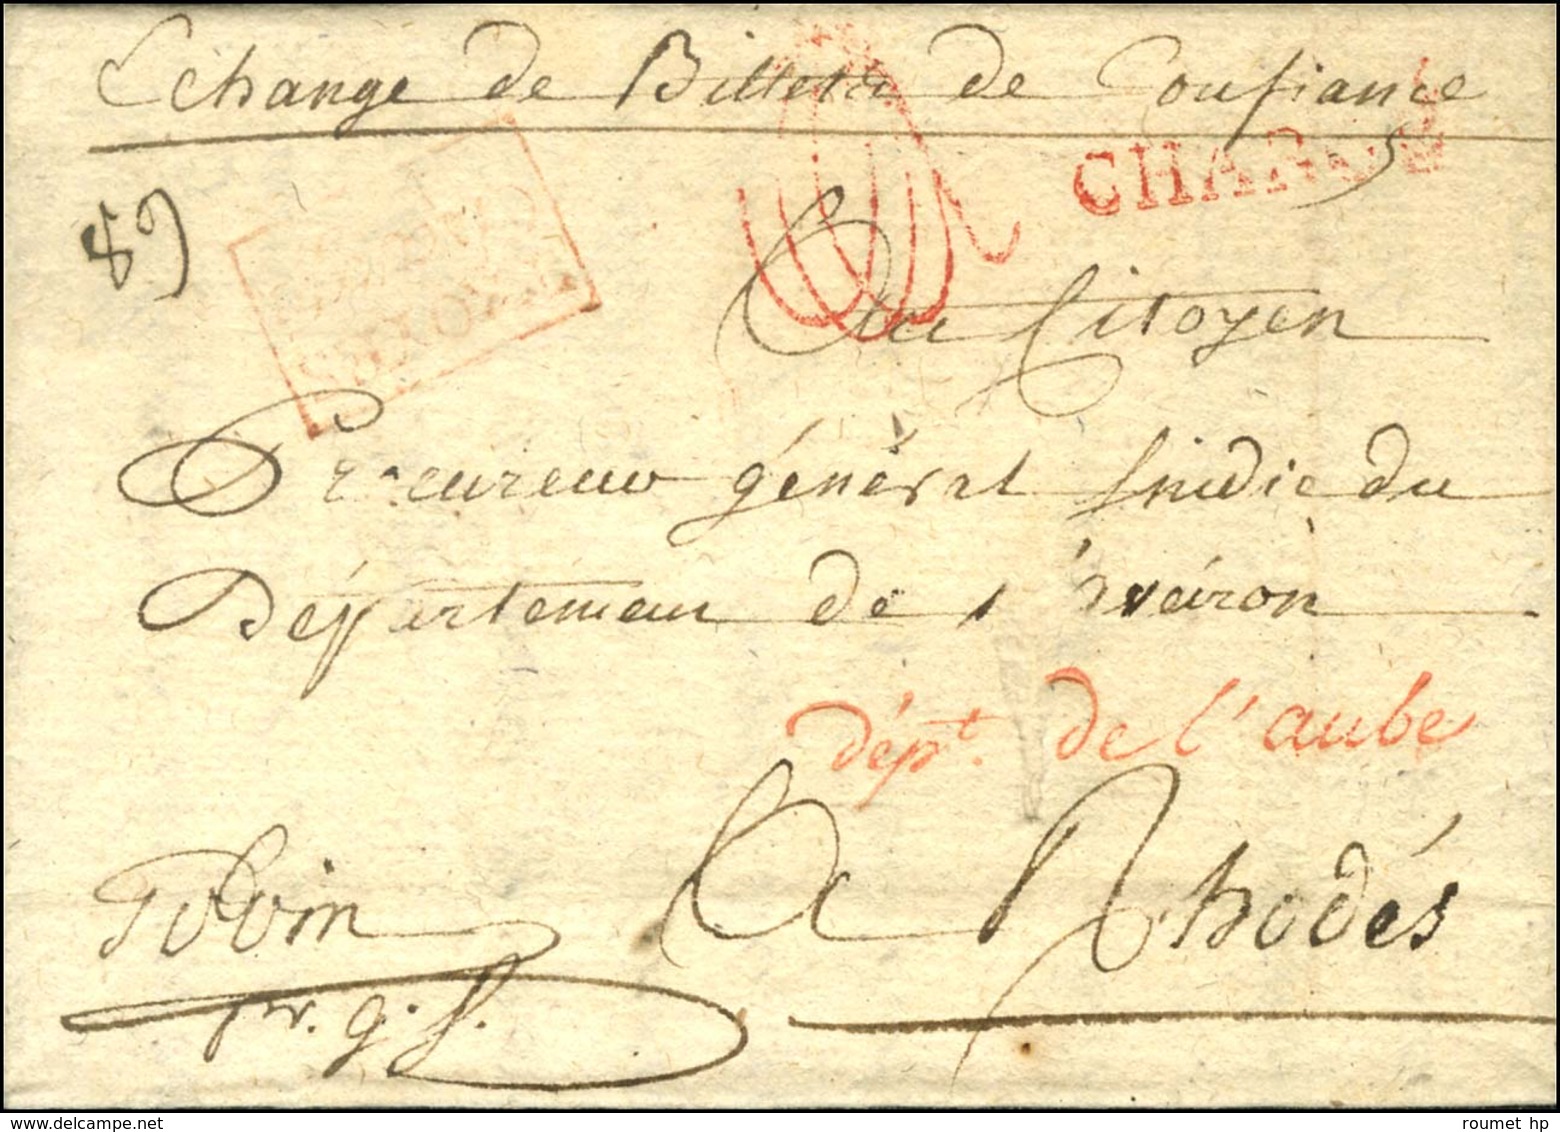 Echange de Billets de Confiance
CHARGÉ
89
Au Citoyen
Procureur général sindic du
Département de l'Aveiron
dépt. de l'aube
A Rhodés
pr. g. s.
roumet hp